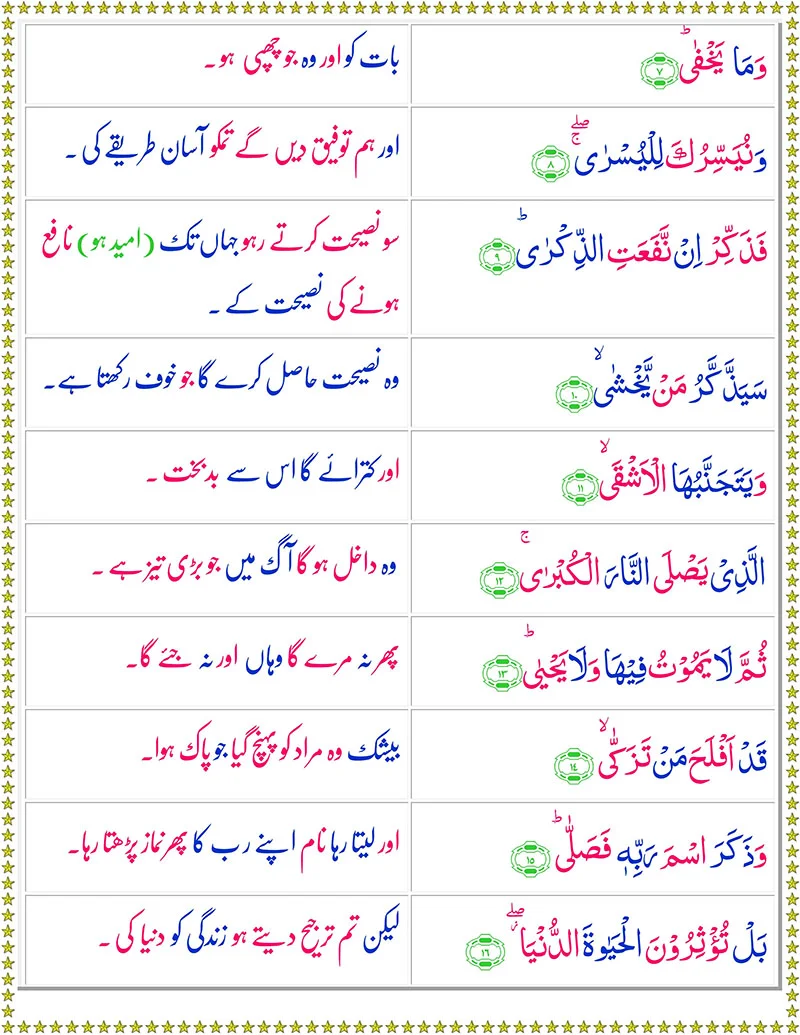 وَمَا يَخْفٰىؕ ۝۷
بات کو اور وہ جو چھپی ہو۔
وَنُيَسِّرُكَ لِلْيُسْرٰىۚۖ ۝۸
اور ہم توفیق دیں گے تمکو آسان طریقے کی۔
فَذَكِّرْ اِنْ نَّفَعَتِ الذِّكْرٰىؕ ۝۹
سو نصیحت کرتے رہو جہاں تک (امید ہو) نافع
ہونے کی نصیحت کے۔
سَيَذَّكَّرُ مَنْ يَّخْشٰىۙ ۝۱۰
وہ نصیحت حاصل کرے گا جو خوف رکھتا ہے۔
وَيَتَجَنَّبُهَا الْاَشْقَىۙ ۝۱۱
اور کترائے گا اس سے بدبخت۔
الَّذِىْ يَصْلَى النَّارَ الْكُبْرٰىۚ ۝۱۲
وہ داخل ہو گا آگ میں جو بڑی تیز ہے۔
ثُمَّ لَا يَمُوْتُ فِيْهَا وَلَا يَحْيٰىؕ ۝۱۳
پھر نہ مرے گا وہاں اور نہ جئے گا۔
قَدْ اَفْلَحَ مَنْ تَزَكّٰىۙ ۝۱۴
بیشک وہ مراد کو پہنچ گیا جو پاک ہوا۔
وَذَكَرَ اسْمَ رَبِّهٖ فَصَلّٰىؕ ۝۱۵
اور لیتا رہا نام اپنے رب کا پھر نماز پڑھتا رہا۔
بَلْ تُؤْثِرُوْنَ الْحَيٰوةَ الدُّنْيَاۖ ۝۱۶
لیکن تم ترجیح دیتے ہو زندگی کو دنیا کی۔